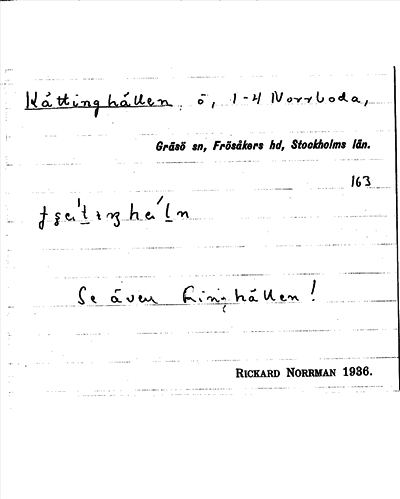 Kåttinghällen, ö, 1-4 Norrboda,
Gräsö sn, Frösåkers hd, Stockholms län.
163
Se även hällen!
RICKARD NORRMAN 1936.